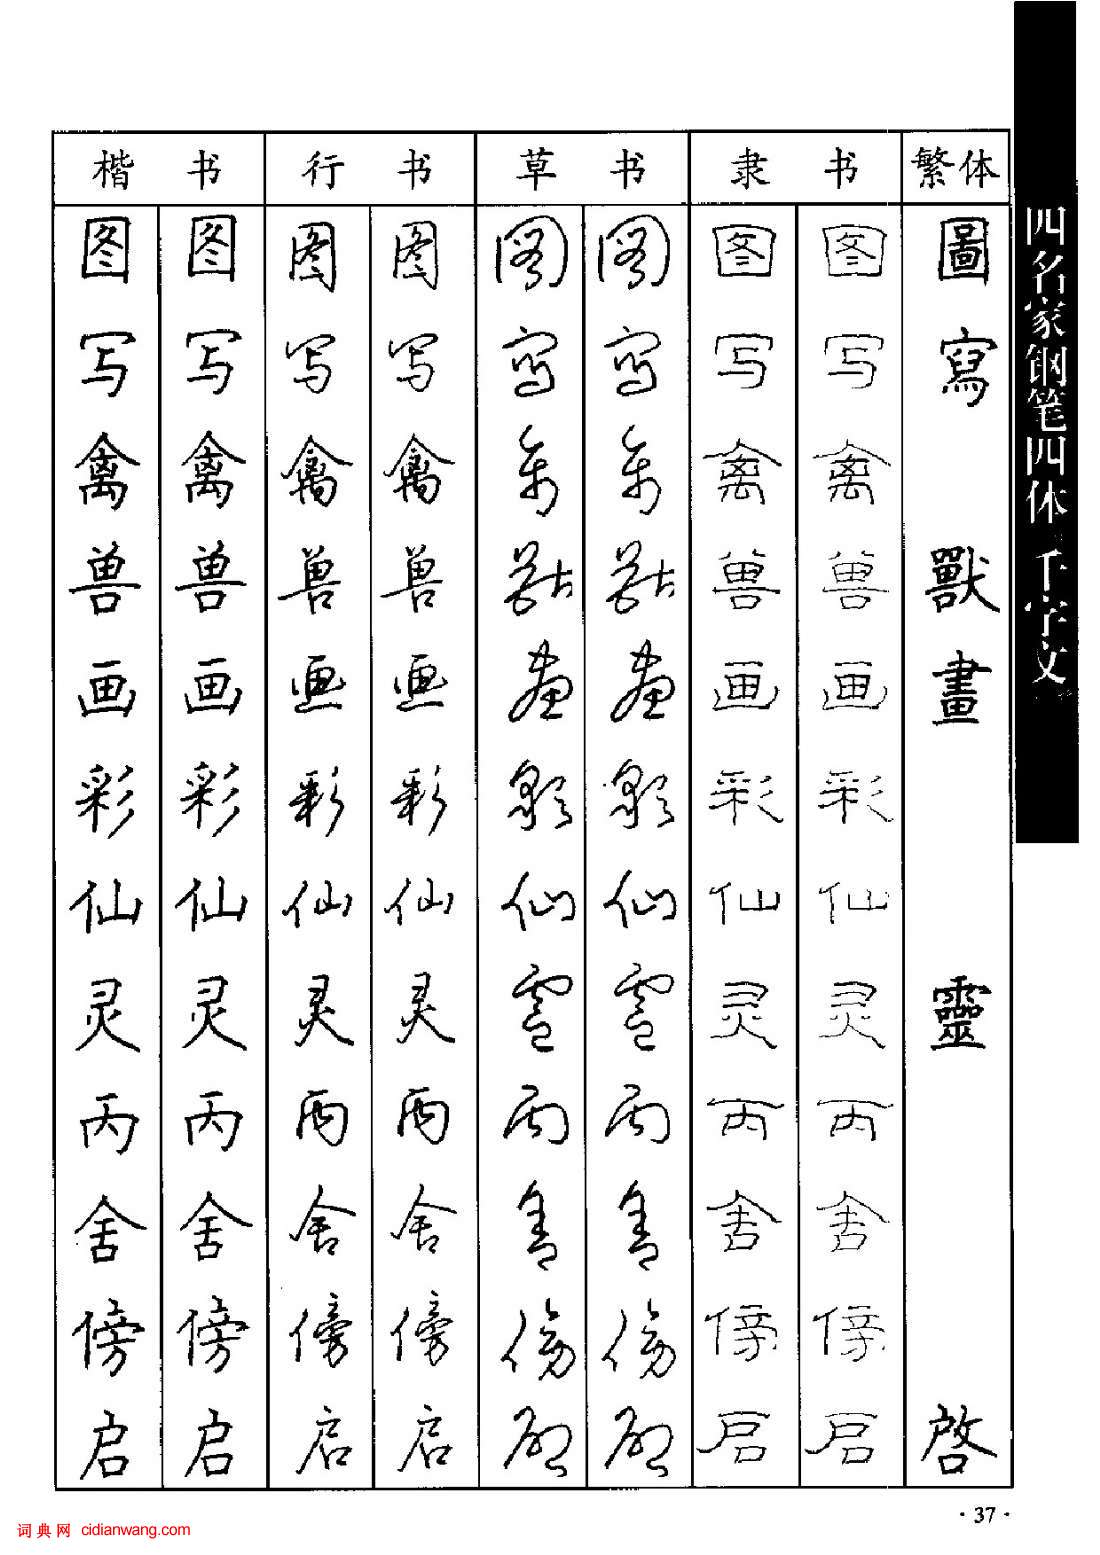 楷书 行书 草书 隶书 繁体
图 图 图 图 图 图 图 图 圖
写 写 写 写 写 写 写 写 寫
禽 禽 禽 禽 禽 禽 禽 禽
兽 兽 兽 兽 獸 獸 兽 兽 獸
画 画 画 画 畫 畫 画 画 畫
彩 彩 彩 彩 彩 彩 彩 彩
仙 仙 仙 仙 仙 仙 仙 仙
灵 灵 灵 灵 靈 靈 灵 灵 靈
丙 丙 丙 丙 丙 丙 丙 丙
舍 舍 舍 舍 舍 舍 舍 舍
傍 傍 傍 傍 傍 傍 傍 傍
启 启 启 启 启 启 启 启 啓
四名家钢笔四体千字文
·37·
词典网 cidianwang.com